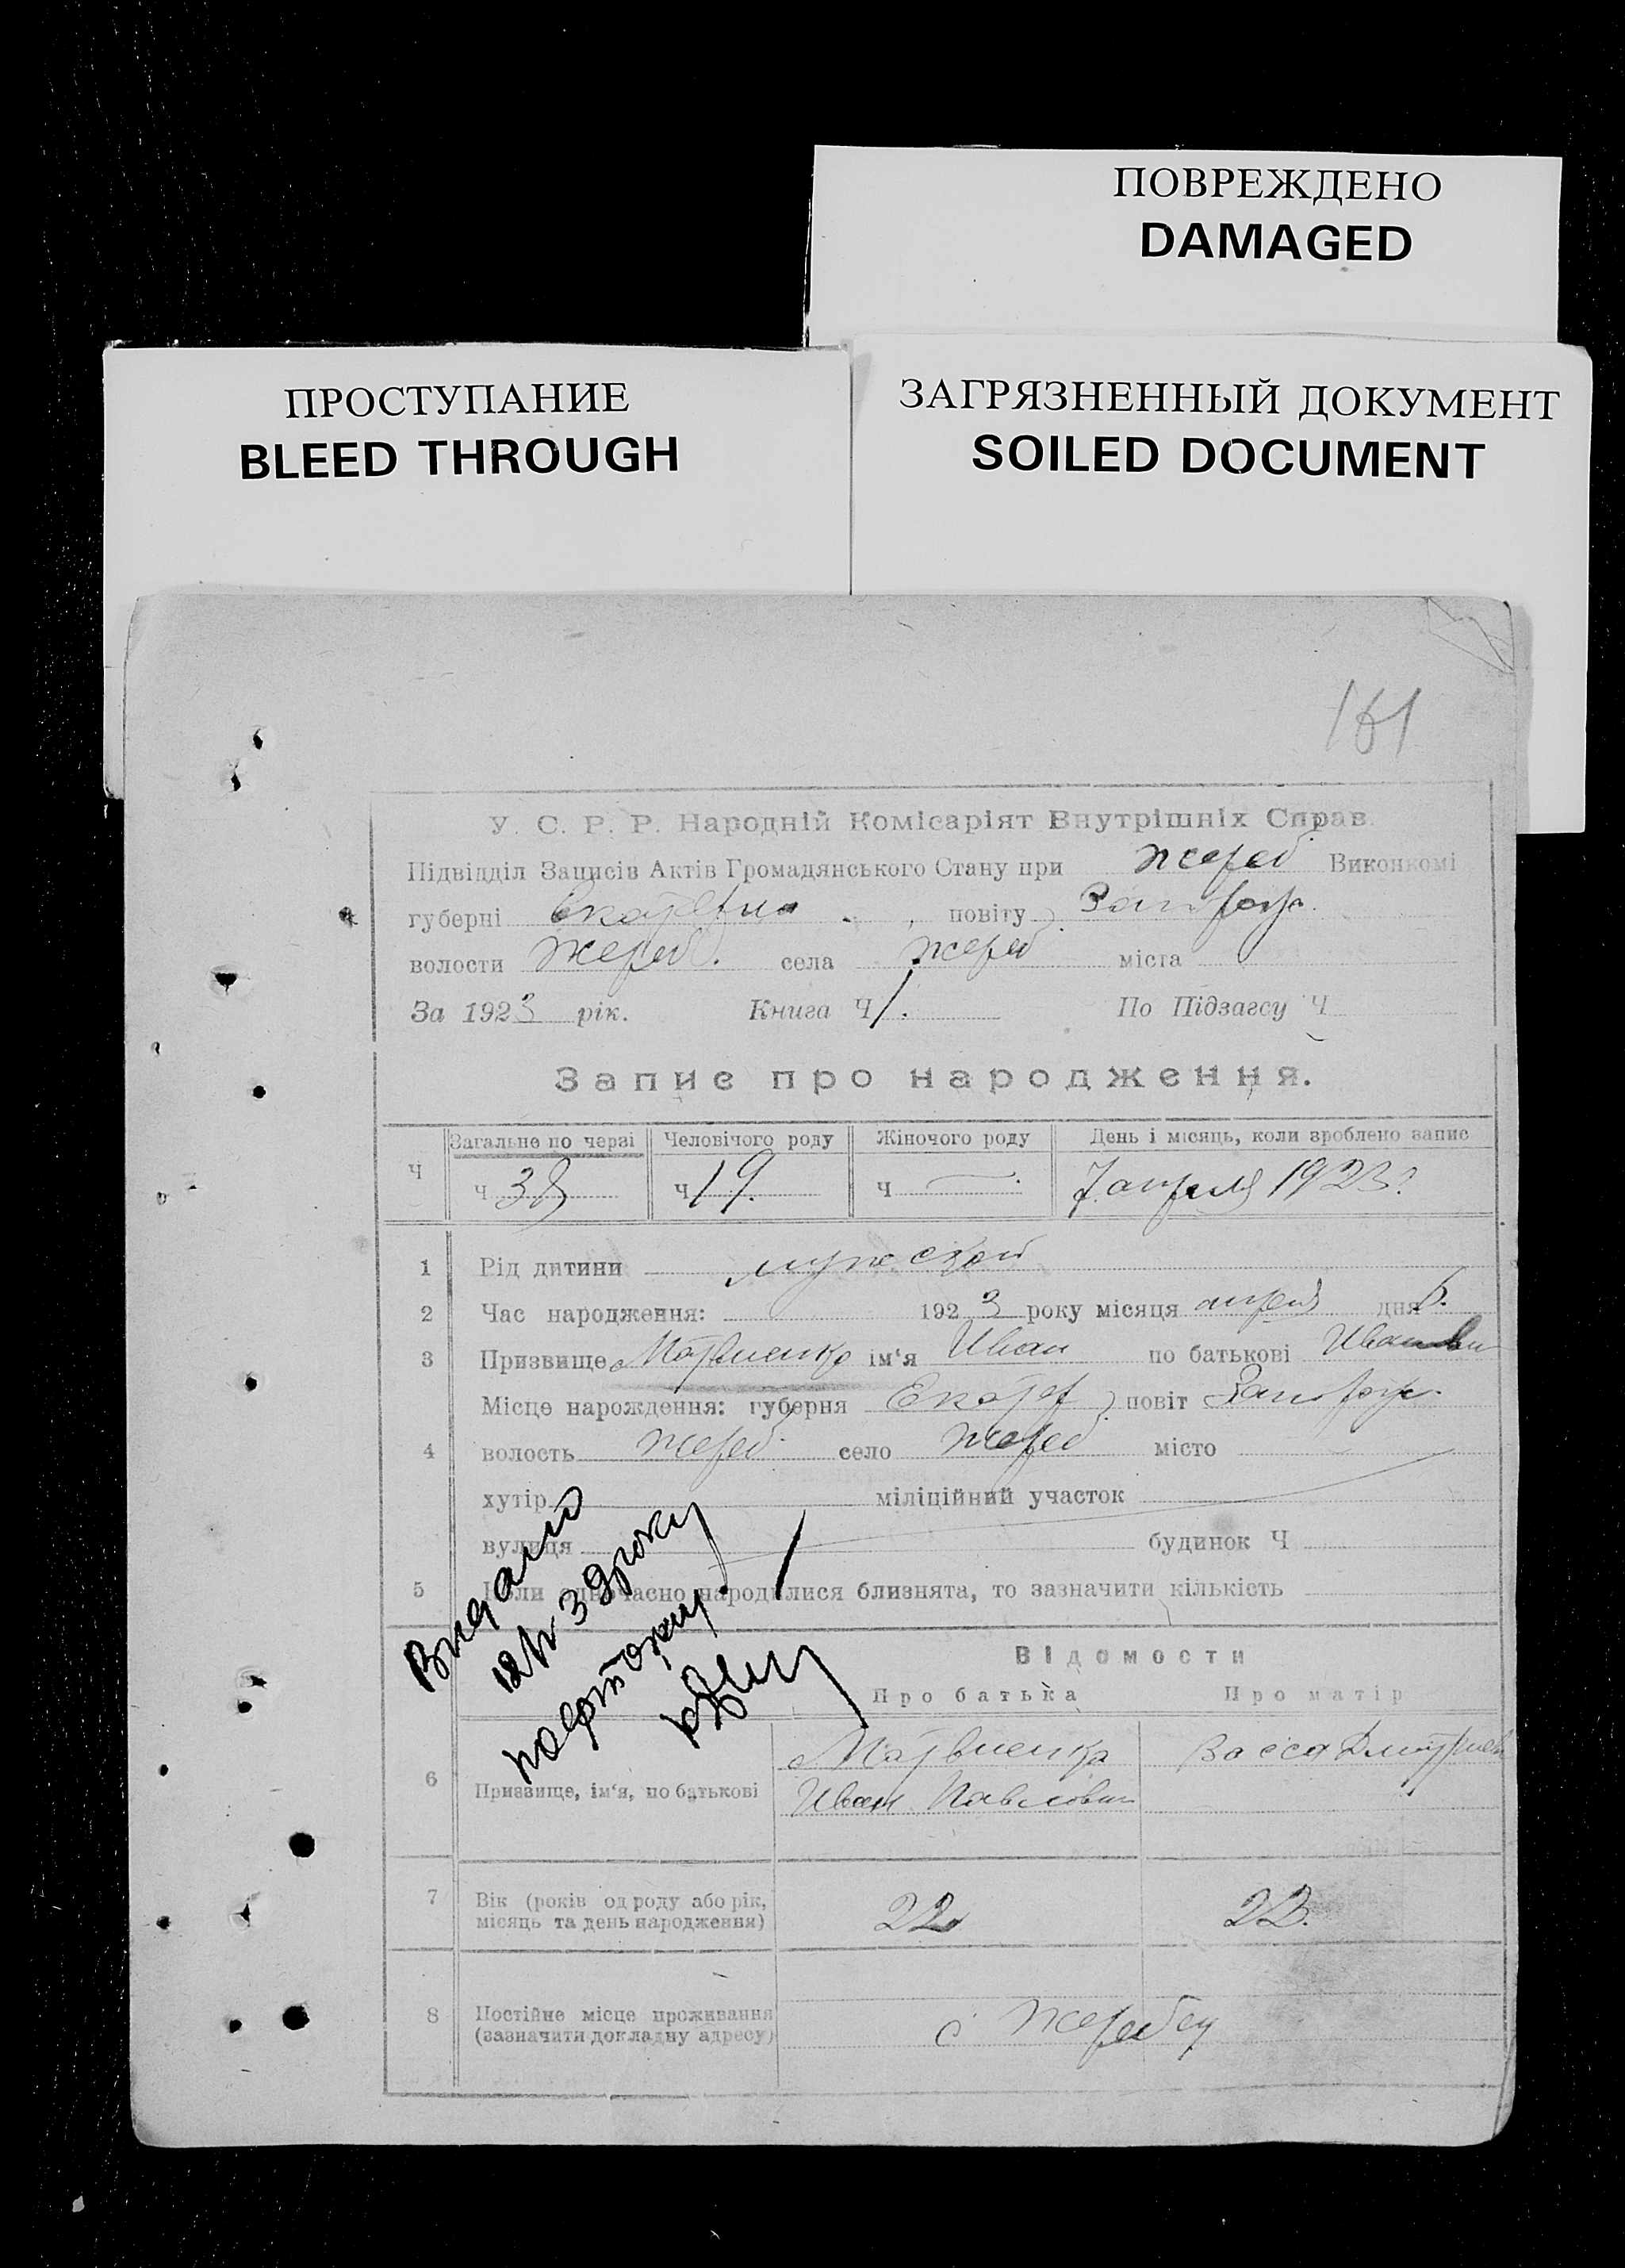 ПОВРЕЖДЕНО
DAMAGED
ПРОСТУПАНИЕ
BLEED THROUGH
ЗАГРЯЗНЕННЫЙ ДОКУМЕНТ
SOILED DOCUMENT
161
У. С. Р. Р. Народній Комісаріят Внутрішніх Справ.
Підвідділ Записів Актів Громадянського Стану при Жереб. Виконкомі
губерні повіту
волости Жереб. села Жереб міста
За 1923 рік. Книга Ч 1. По Підзагсу Ч
Запис про народження.
Ч Загальне по черзі Человічого роду Жіночого роду День і місяць, коли зроблено запис
ч 38 ч 19. ч — 7 апреля 1923 г.
1 Рід дитини мужской
2 Час народження: 1923 року місяця апреля дня 6.
3 Призвище Матвиенко ім'я Иван по батькові Иванович
Місце нарождення: губерня Екатер повіт
4 волость Жереб село Жереб місто
хутір міліційний участок
вулиця будинок Ч
5 Коли одночасно народилися близнята, то зазначити кількість
Видано
39 року
Відомости
Про батька Про матір
6 Призвище, ім'я, по батькові
Матвиенко Васса Дмитриев
Иван Павлович
7 Вік (років од роду або рік, місяць та день народження) 22 23.
8 Постійне місце проживання (зазначити докладну адресу) с Жеребец